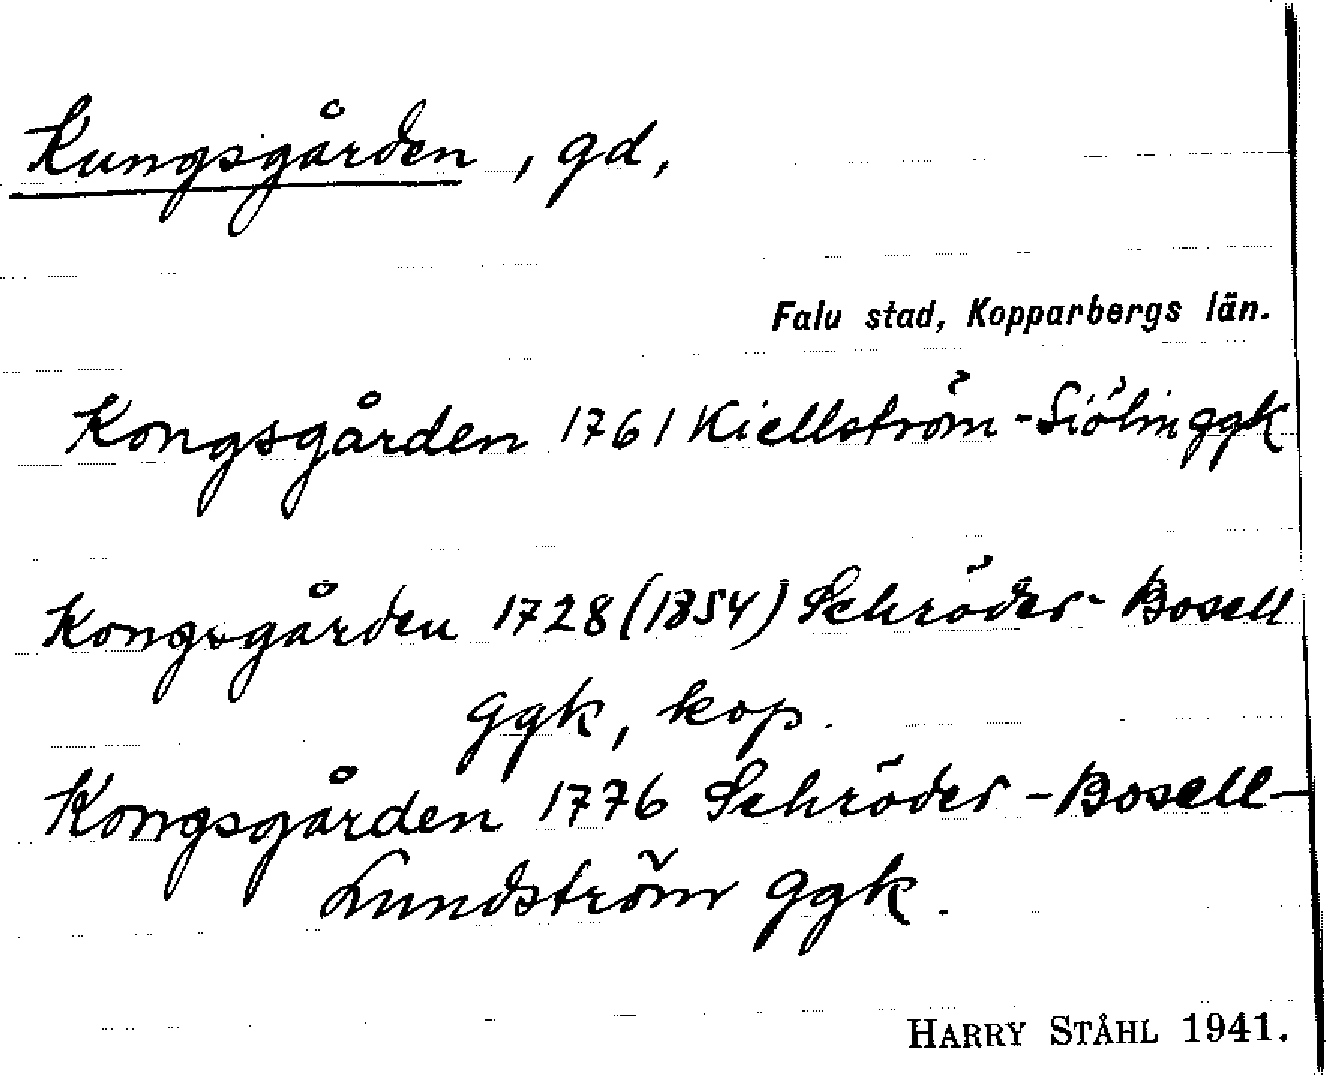 Kungsgården, gd,
Falu stad, Kopparbergs län.
Kongsgården 1761 Kiellström-Siölin ggk
Kongsgården 1728 (1854) Schröder-Bosell
ggk, kop.
Kongsgården 1776 Schröder-Bosell-
Lundström ggk.
HARRY STÅHL 1941.